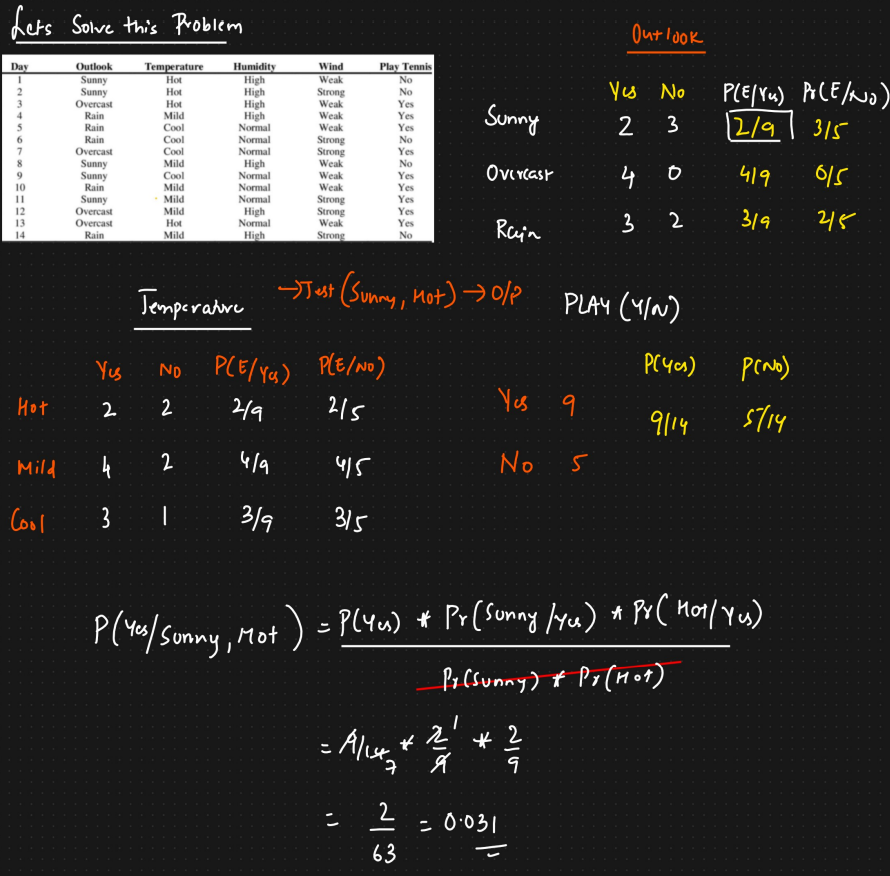 Lets Solve this Problem
Day Outlook Temperature Humidity Wind Play Tennis
1 Sunny Hot High Weak No
2 Sunny Hot High Strong No
3 Overcast Hot High Weak Yes
4 Rain Mild High Weak Yes
5 Rain Cool Normal Weak Yes
6 Rain Cool Normal Strong No
7 Overcast Cool Normal Strong Yes
8 Sunny Mild High Weak No
9 Sunny Cool Normal Weak Yes
10 Rain Mild Normal Weak Yes
11 Sunny Mild Normal Strong Yes
12 Overcast Mild High Strong Yes
13 Overcast Hot Normal Weak Yes
14 Rain Mild High Strong No
Outlook
Yes No P(E/Yes) Pr(E/No)
Sunny 2 3 2/9 3/5
Overcast 4 0 4/9 0/5
Rain 3 2 3/9 2/5
Temperature → Test (Sunny, Hot) → O/P
Yes No P(E/Yes) P(E/No)
Hot 2 2 2/9 2/5
Mild 4 2 4/9 4/5
Cool 3 1 3/9 3/5
PLAY (Y/N)
P(Yes) P(No)
Yes 9 9/14 5/14
No 5
P(Yes/Sunny, Hot) = P(Yes) * Pr(Sunny/Yes) * Pr(Hot/Yes)
Pr(Sunny) * Pr(Hot)
= 9/14 7 * 2/9 1 * 2/9
= 2/63 = 0.031